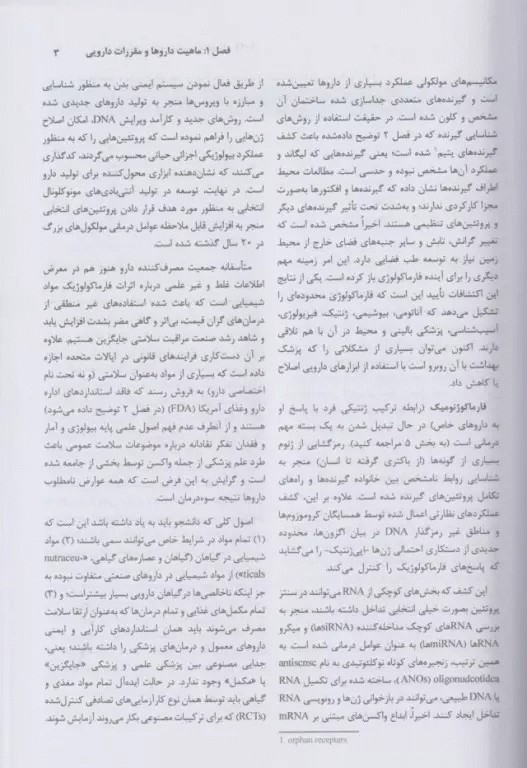 فصل ۱: ماهیت داروها و مقررات دارویی ۳
مکانیسم‌های مولکولی عملکرد بسیاری از داروها تعیین‌شده
است و گیرنده‌های متعددی جداسازی شده ساختمان آن
مشخص و کلون شده است. در حقیقت استفاده از روش‌های
شناسایی گیرنده که در فصل ۲ توضیح داده‌شده باعث کشف
گیرنده‌های یتیم۱ شده است؛ یعنی گیرنده‌هایی که لیگاند و
عملکرد آن‌ها مشخص نبوده و حدسی است. مطالعات محیط
اطراف گیرنده‌ها نشان داده که گیرنده‌ها و افکتورها به‌صورت
مجزا کارکردی ندارند؛ و به‌شدت تحت تأثیر گیرنده‌های دیگر
و پروتئین‌های تنظیمی هستند. اخیراً مشخص شده است که
تغییر گرانش، تابش و سایر جنبه‌های فضای خارج از محیط
زمین نیاز به توسعه طب فضایی دارد. این امر زمینه مهم
دیگری را برای آینده فارماکولوژی باز کرده است. یکی از نتایج
این اکتشافات تأیید این است که فارماکولوژی محدوده‌ای را
تشکیل می‌دهد که آناتومی، بیوشیمی، ژنتیک، فیزیولوژی،
آسیب‌شناسی، پزشکی بالینی و محیط در آن با هم تلاقی
دارند. اکنون می‌توان بسیاری از مشکلاتی را که پزشک
بهداشت با آن روبرو است با استفاده از ابزارهای دارویی اصلاح
یا کاهش داد.
فارماکوژنومیک (رابطه ترکیب ژنتیکی فرد با پاسخ او
به داروهای خاص) در حال تبدیل شدن به یک بسته مهم
درمانی است (به بخش ۵ مراجعه کنید). رمزگشایی از ژنوم
بسیاری از گونه‌ها (از باکتری گرفته تا انسان) منجر به
شناسایی روابط نامشخص بین خانواده گیرنده‌ها و راه‌های
تکامل پروتئین‌های گیرنده شده است. علاوه بر این، کشف
عملکردهای نظارتی اعمال شده توسط همسایگان کروموزوم‌ها
و مناطق غیر رمزگذار DNA در بیان اگزون‌ها، محدوده
جدیدی از دستکاری احتمالی ژن‌ها «اپی‌ژنتیک» را می‌گشاید
که پاسخ‌های فارماکولوژیک را کنترل می‌کند.
این کشف که بخش‌های کوچکی از RNA می‌توانند در سنتز
پروتئین بصورت خیلی انتخابی تداخل داشته باشند، منجر به
بررسی RNAهای کوچک مداخله‌کننده (siRNAها) و میکرو
RNAها (miRNAها) به عنوان عوامل درمانی شده است. به
همین ترتیب، زنجیره‌های کوتاه نوکلئوتیدی به نام antisense
oligonucleotides (ANOs)، ساخته شده برای تکمیل RNA
یا DNA طبیعی، می‌توانند در بازخوانی ژن‌ها و رونویسی RNA
تداخل ایجاد کنند. اخیراً، ابداع واکسن‌های مبتنی بر mRNA
1. orphan receptors
از طریق فعال نمودن سیستم ایمنی بدن به منظور شناسایی
و مبارزه با ویروس‌ها منجر به تولید داروهای جدیدی شده
است. روش‌های جدید و کارآمد ویرایش DNA، امکان اصلاح
ژن‌هایی را فراهم نموده است که پروتئین‌هایی را که به منظور
عملکرد بیولوژیکی اجزائی حیاتی محسوب می‌گردند، کدگذاری
می‌کنند، که نشان‌دهنده ابزاری محول‌کننده برای تولید دارو
است. در نهایت، توسعه در تولید آنتی‌بادی‌های مونوکلونال
انتخابی به منظور مورد هدف قرار دادن پروتئین‌های انتخابی
منجر به افزایش قابل ملاحظه عوامل درمانی مولکول‌های بزرگ
در ۲۰ سال گذشته شده است.
متأسفانه جمعیت مصرف‌کننده دارو هنوز هم در معرض
اطلاعات غلط و غیر علمی درباره اثرات فارماکولوژیک مواد
شیمیایی است که باعث شده استفاده‌های غیر منطقی از
درمان‌های گران قیمت، بی‌اثر و گاهی مضر بشدت افزایش یابد
و شاهد رشد صنعت مراقبت سلامتی جایگزین هستیم. علاوه
بر آن دست‌کاری فرایندهای قانونی در ایالات متحده اجازه
داده است که بسیاری از مواد به‌عنوان سلامتی (و نه تحت نام
اختصاصی دارو) به فروش رسند که فاقد استانداردهای اداره
دارو وغذای آمریکا (FDA) (در فصل ۲ توضیح داده می‌شود)
هستند و از آنطرف عدم فهم اصول علمی پایه بیولوژی و آمار
و فقدان تفکر نقادانه درباره موضوعات سلامت عمومی باعث
طرد علم پزشکی از جمله واکسن توسط بخشی از جامعه شده
است و گرایش به این فرض است که همه عوارض نامطلوب
داروها نتیجه سوءدرمان است.
اصول کلی که دانشجو باید به یاد داشته باشد این است که
(۱) تمام مواد در شرایط خاص می‌توانند سمی باشند؛ (۲) مواد
شیمیایی در گیاهان (گیاهان و عصاره‌های گیاهی، «nutraceu-
ticals») از مواد شیمیایی در داروهای صنعتی متفاوت نبوده به
جز اینکه ناخالصی‌ها درگیاهان دارویی بسیار بیشتراست؛ و (۳)
تمام مکمل‌های غذایی و تمام درمان‌ها که به‌عنوان ارتقا سلامت
مصرف می‌شوند باید همان استانداردهای کارآیی و ایمنی
داروهای معمول و درمان‌های پزشکی را داشته باشند؛ یعنی،
جدایی مصنوعی بین پزشکی علمی و پزشکی «جایگزین»
یا «مکمل» وجود ندارد. در حالت ایده‌آل تمام مواد مغذی و
گیاهی باید توسط همان نوع کارآزمایی‌های تصادفی کنترل‌شده
(RCTs) که برای ترکیبات مصنوعی بکار می‌روند آزمایش شوند.